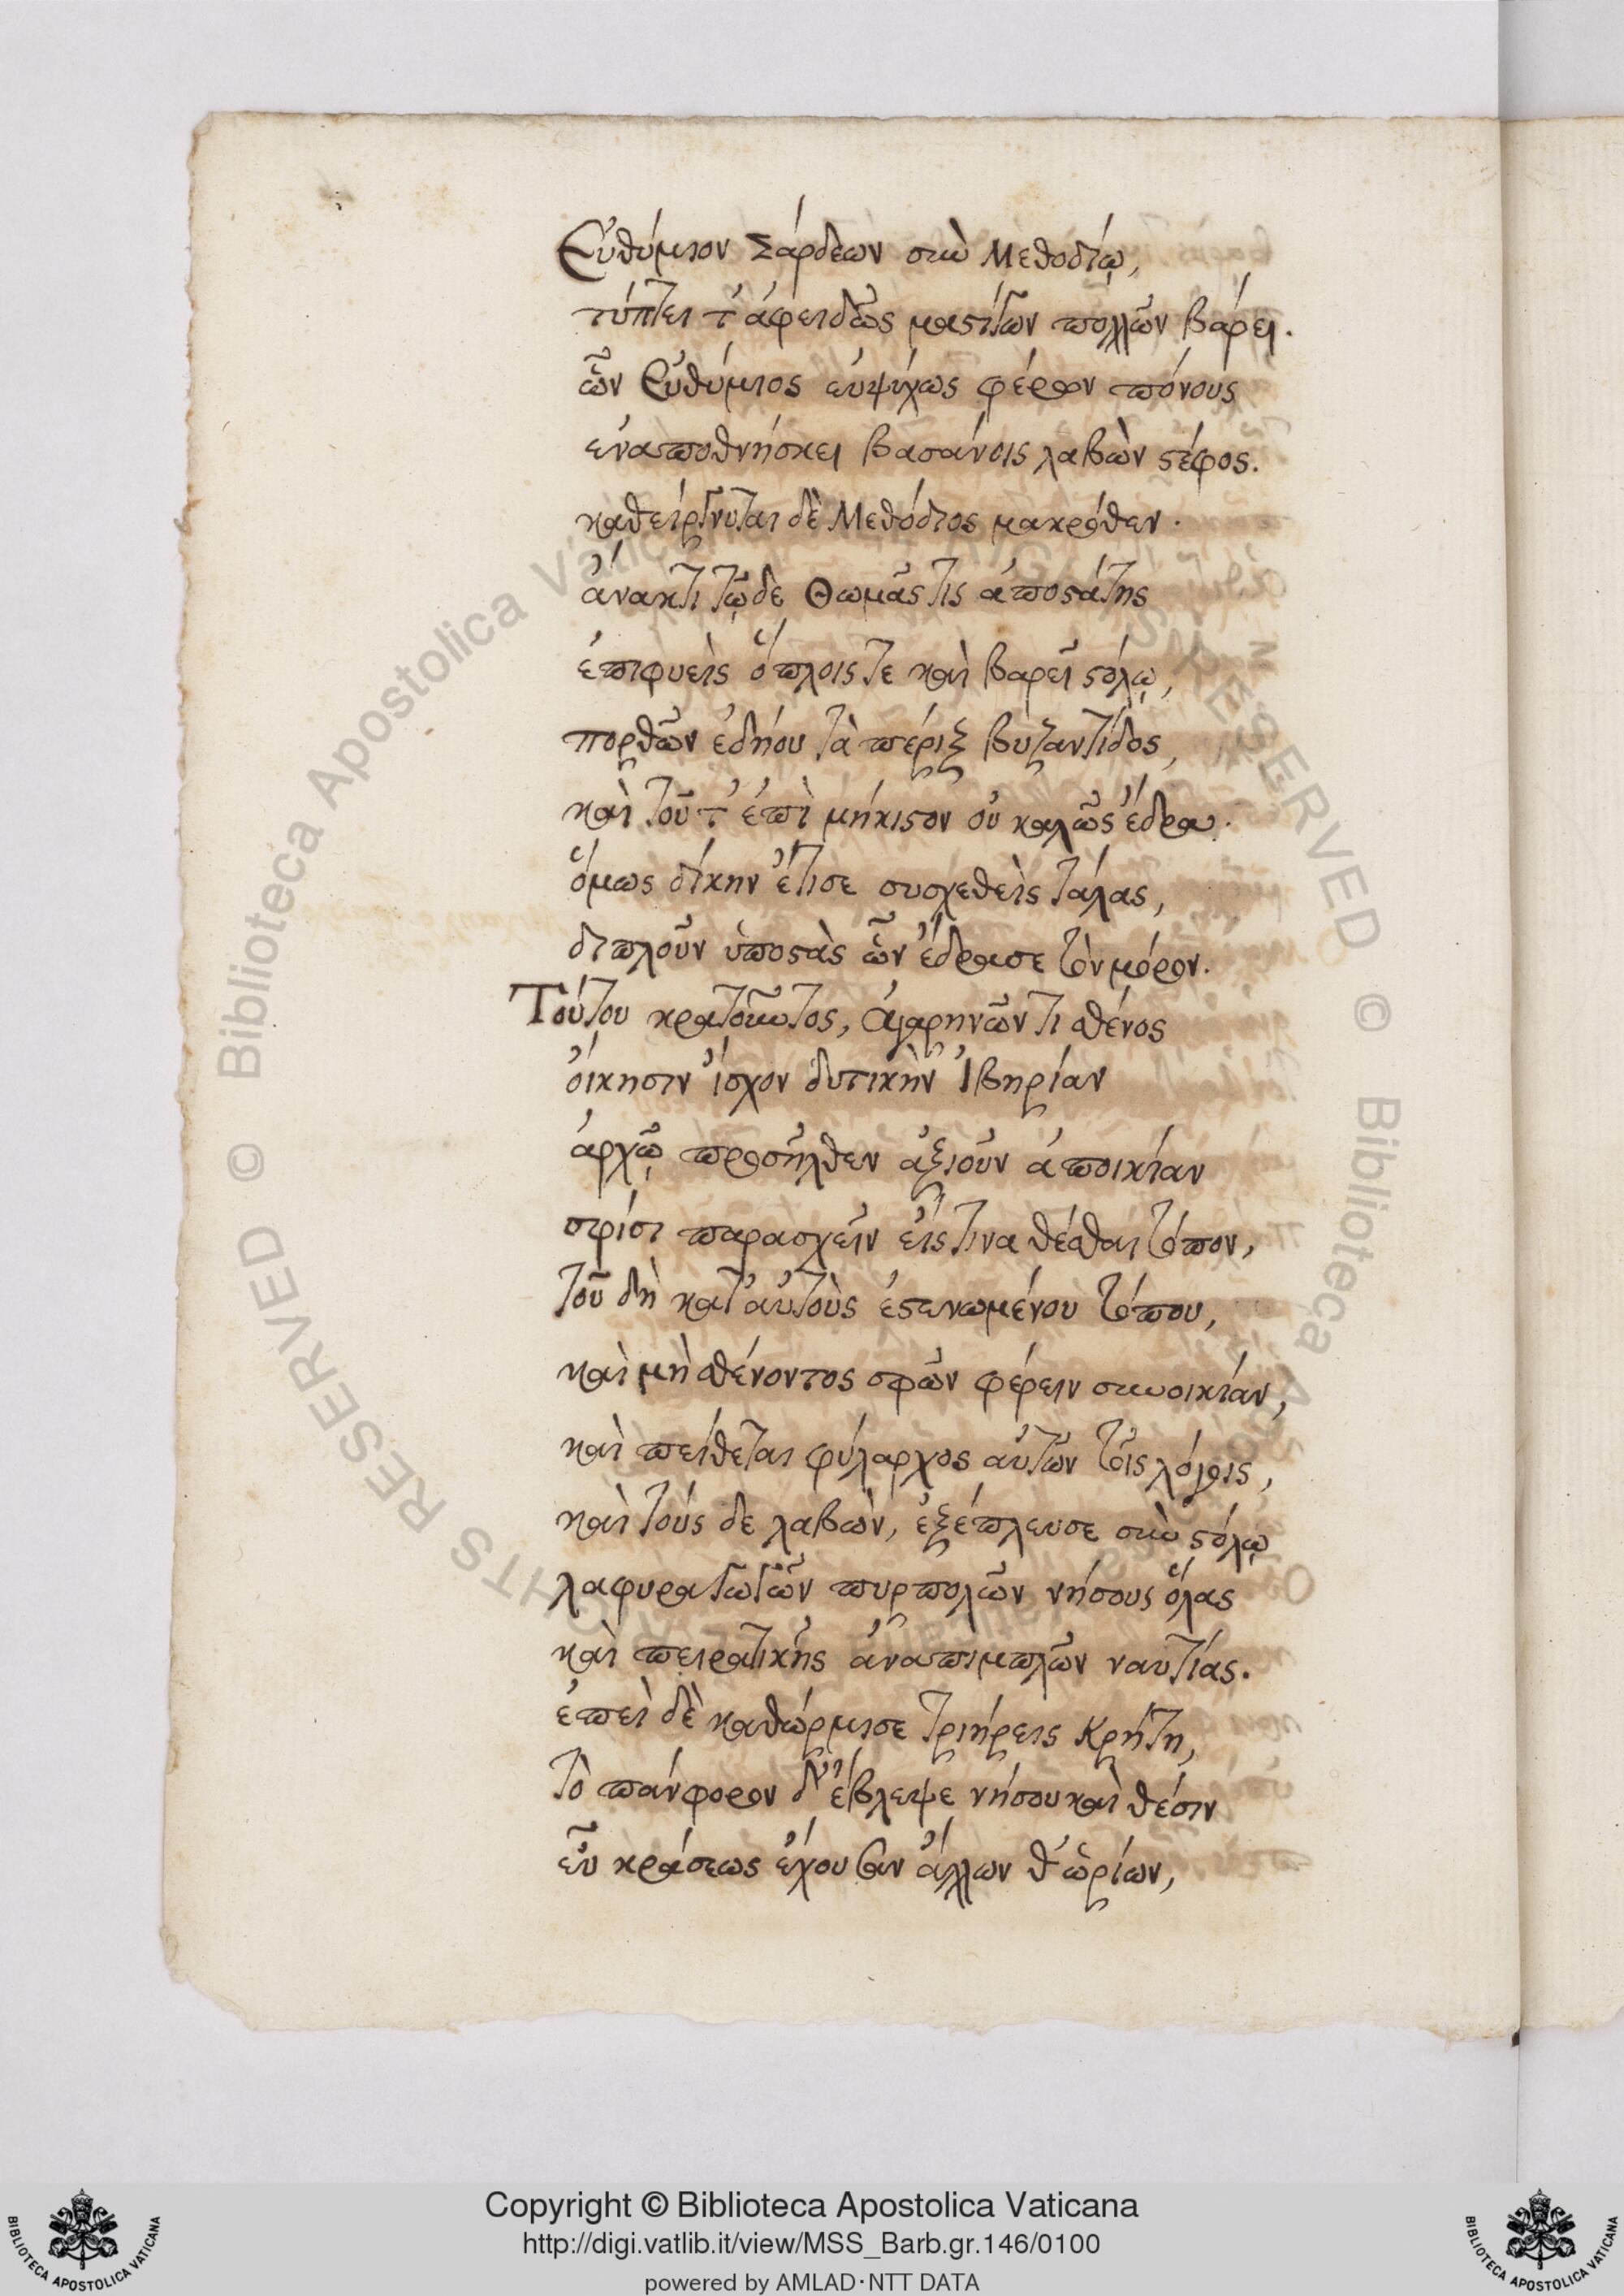 Εὐθύμιον Σάρδεων σὺν Μεθοδίῳ,
τύπτει τ' ἀφειδῶς μαστίγων πολλῶν βάρει.
ὧν Εὐθύμιος εὐψύχως φέρον πόνους
ἐναποθνήσκει βασάνοις λαβὼν στέφος.
καθείργνυται δὲ Μεθόδιος μακρόθεν.
ἄνακτι τῷδε Θωμᾶς τις ἀποστάτης
ἐπιφυεὶς ὅπλοις τε καὶ βαρεῖ στόλῳ,
πορθῶν ἐδῄου τὰ πέριξ Βυζαντίδος,
καὶ τοῦτ' ἐπὶ μήκιστον οὐ καλῶς ἔδρα.
ὅμως δίκην ἔτισε συσχεθεὶς τάλας,
διπλοῦν ὑποστὰς ὧν ἔδρασε τὸν μόρον.
Τούτου κρατοῦντος, Ἀγαρηνῶν τι σθένος
οἴκησιν ἴσχον δυτικὴν Ἰβηρίαν
ἀρχῷ προσῆλθεν ἀξιοῦν ἀποικίαν
σφίσι παρασχεῖν εἴς τινα θέσθαι τόπον,
τοῦ δὴ κατ' αὐτοὺς ἐστενωμένου τόπου,
καὶ μὴ σθένοντος σφῶν φέρειν συνοικίαν,
καὶ πείθεται φύλαρχος αὐτῶν τοῖς λόγοις,
καὶ τούς δε λαβὼν, ἐξέπλευσε σὺν στόλῳ
λαφυραγωγῶν πυρπολῶν νήσους ὅλας
καὶ πειρατικῆς ἀναπιμπλῶν ναυτίας.
ἐπεὶ δὲ καθώρμισε τριήρεις Κρήτῃ,
τὸ πάνφορον δ' ἔβλεψε νήσου καὶ θέσιν
εὖ κράσεως ἔχουσαν ἄλλων θ' ὡρίων,
Copyright © Biblioteca Apostolica Vaticana
http://digi.vatlib.it/view/MSS_Barb.gr.146/0100
powered by AMLAD·NTT DATA